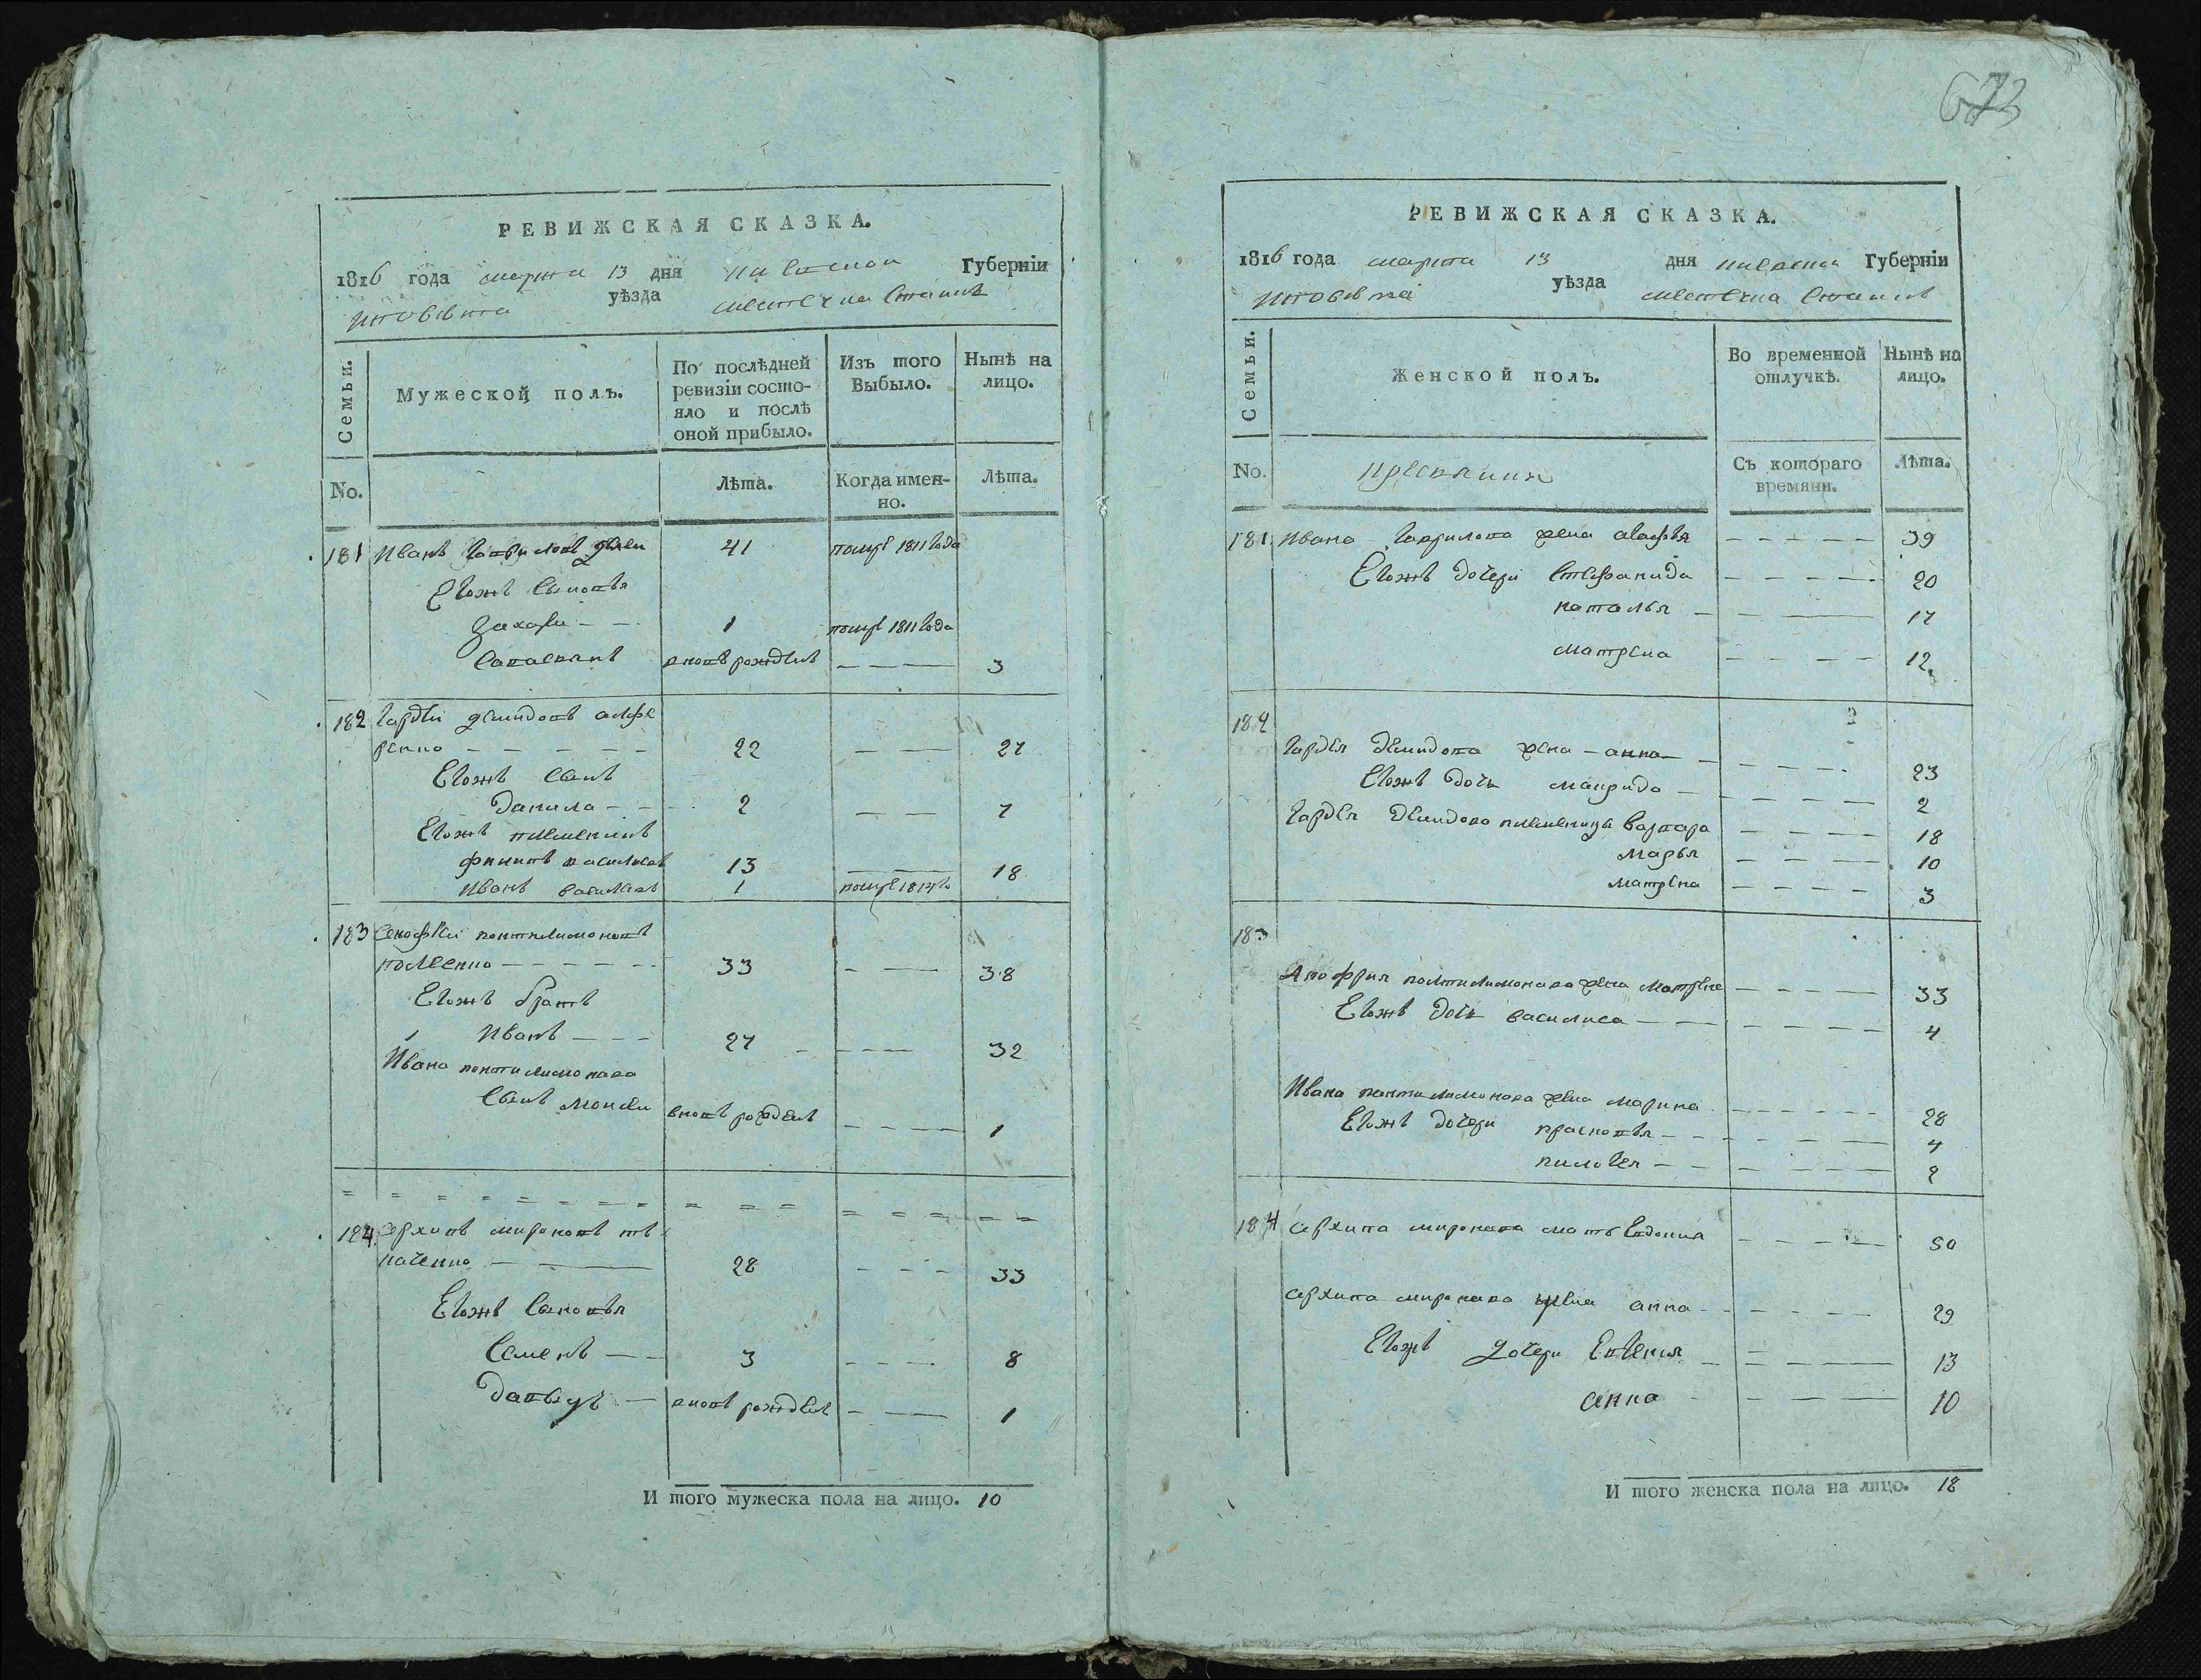 РЕВИЖСКАЯ СКАЗКА.
1816 года марта 13 дня Киевской Губерніи
уѣзда местечка Ставищ
Семьи.
Мужеской полъ.
По послѣдней ревизіи состо-
яло и послѣ
оной прибыло.
Изъ того
Выбыло.
Нынѣ на
лицо.
No.
Лѣта.
Когда имен-
но.
Лѣта.
181 Иванъ Гавриловъ 41 помре 1811 года
Егожъ Сыновья
Захари 1 помре 1811 года
Савастянъ вновь рожденъ 3
182 Гардѣй Демидовъ
ренко 22 27
Егожъ Сынъ
Данила 2 7
Егожъ племенникъ
Филипъ Василевъ 13 18
Иванъ Василевъ 1 помре
183 пантилимоновъ
33 38
Егожъ братъ
Иванъ 27 32
Ивана пантилимонова
Сынъ Моисей вновь рожденъ 1
184 Архипъ мироновъ
28 33
Егожъ Сыновья
Семенъ 3 8
Давыдъ вновь рожденъ 1
И того мужеска пола на лицо. 10
673
РЕВИЖСКАЯ СКАЗКА.
1816 года марта 13 дня Киевской Губерніи
уѣзда местечка Ставищ
Семьи.
Женской полъ.
Во временной
отлучкѣ.
Нынѣ на
лицо.
No.
Съ котораго
времяни.
Лѣта.
181 Ивана Гаврилова жена агафья 39
Егожъ дочери Стефанида 20
наталья 17
матрена 12
182
Гардея Демидова жена анна 23
Егожъ дочь 2
Гардея Демидова племеницы Варвара 18
Марья 10
Матрена 3
183
Анофрия пантилимонова жена Матрена 33
Егожъ дочь василиса 4
Ивана пантилимонова жена марина 28
Егожъ дочери прасковья 4
пилагея 2
184 архипа миронова мать Евдокия 50
архипа миронова жена анна 29
Егожъ дочери Евгения 13
анна 10
И того женска пола на лицо. 18